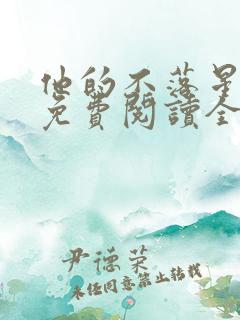 他的不落星
免費閱讀全
尹德荣
未经同意禁止转载